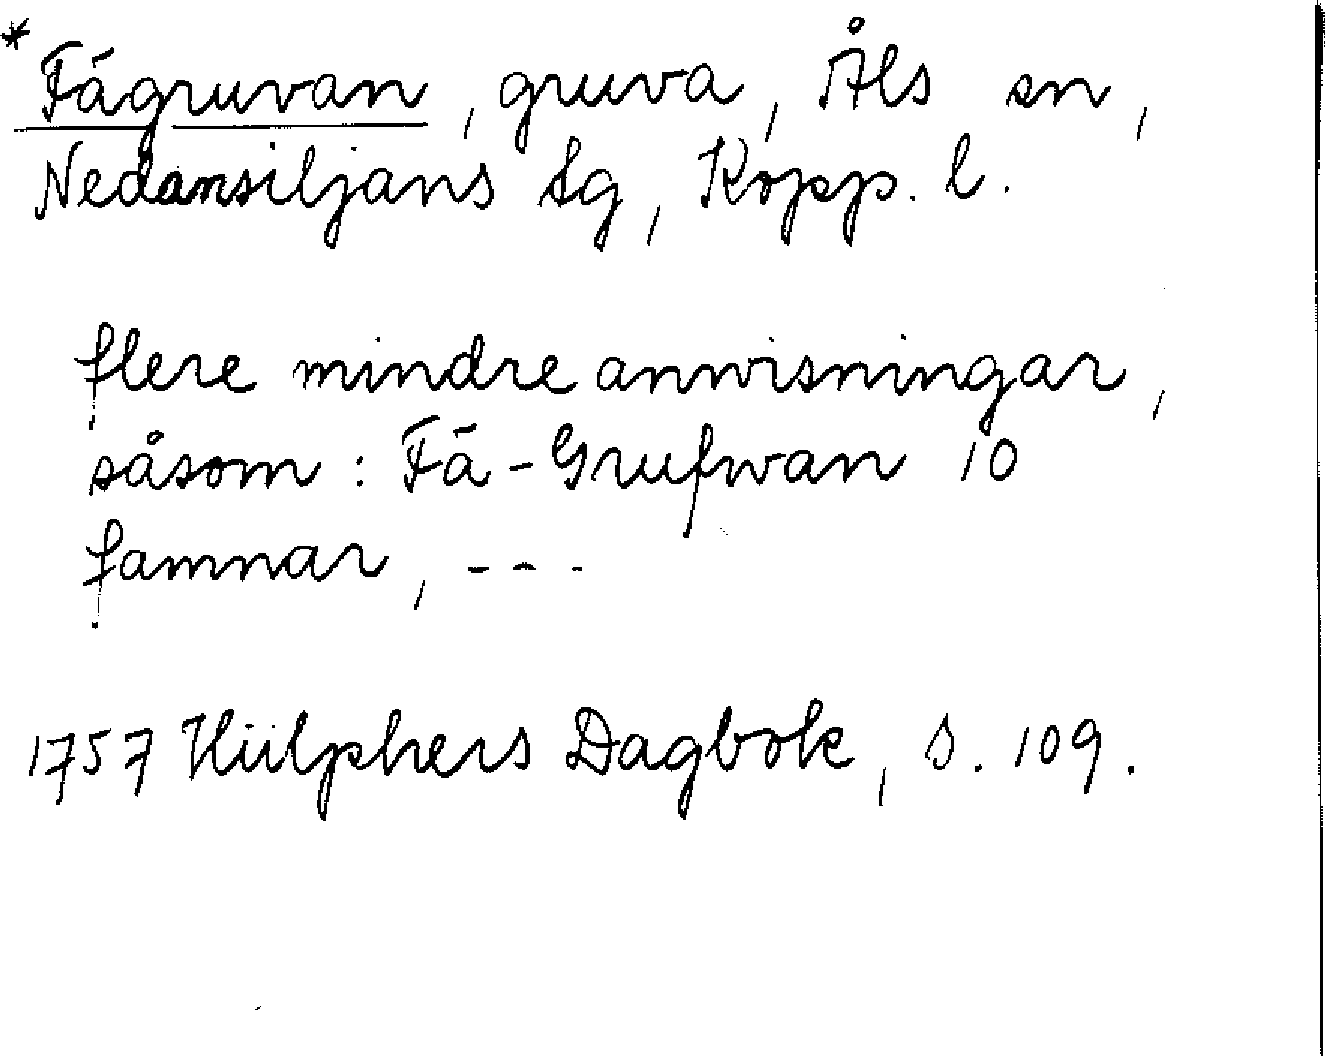 *Fägruvan, gruva, Åls sn,
Nedansiljans tg, Kopp. l.
flere mindre anwisningar,
såsom: Fä-Grufwan 10
famnar, ---
1757 Hülphers Dagbok, s. 109.